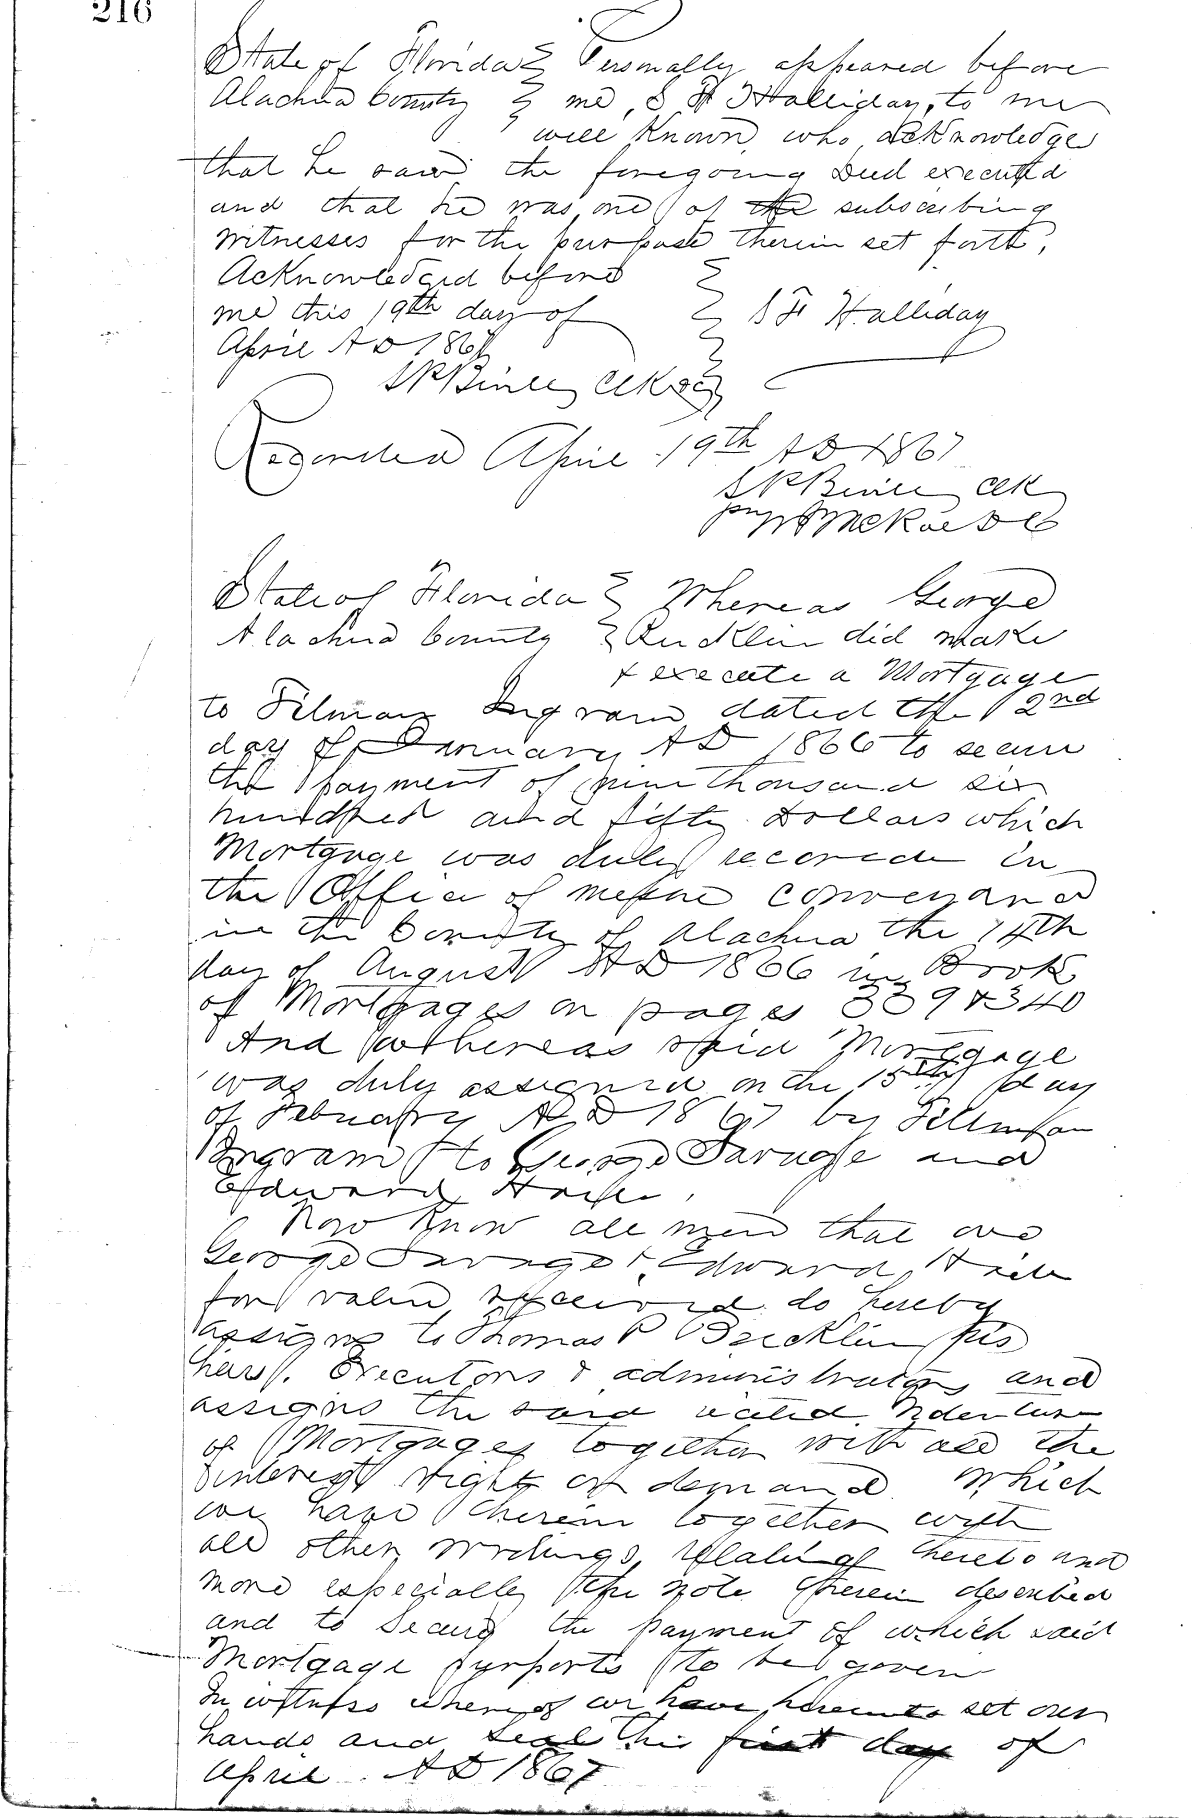 216
State of Florida } Personally appeared before
Alachua County } me, S F Halliday, to me
well Known, who acknowledges
that he saw the foregoing Deed executed
and that he was one of the subscribing
witnesses for the purpose therein set forth,
Acknowledged before
me this 19th day of } S F Halliday
April AD 1867
Clk
Recorded April 19th AD 1867
Clk
McRae D C
State of Florida } Whereas George
Alachua County } did make
& execute a Mortgage
to Tilman Ingram dated the 2nd
day of January AD 1866 to secure
the payment of nine thousand six
hundred and fifty Dollars which
Mortgage was duly recorded in
the Office of mesne conveyance
in the County of Alachua the 14th
day of August AD 1866 in Book
of Mortgages on pages 339 & 340
And whereas said Mortgage
was duly assigned on the 15th day
of February AD 1867 by Tillman
Ingram to George Savage and
Edward Haile.
Now Know all men that we
George Savage & Edward Haile
for value received do hereby
assigns to Thomas P his
heirs. Executors & administrators and
assigns the said recited Indenture
of Mortgages together with all the
interest right or demand which
we have therein together with
all other writings relating thereto and
more especially the note therein described
and to secure the payment of which said
Mortgage purports to be given
In witness whereof we have hereunto set our
hands and seal this first day of
April. AD 1867